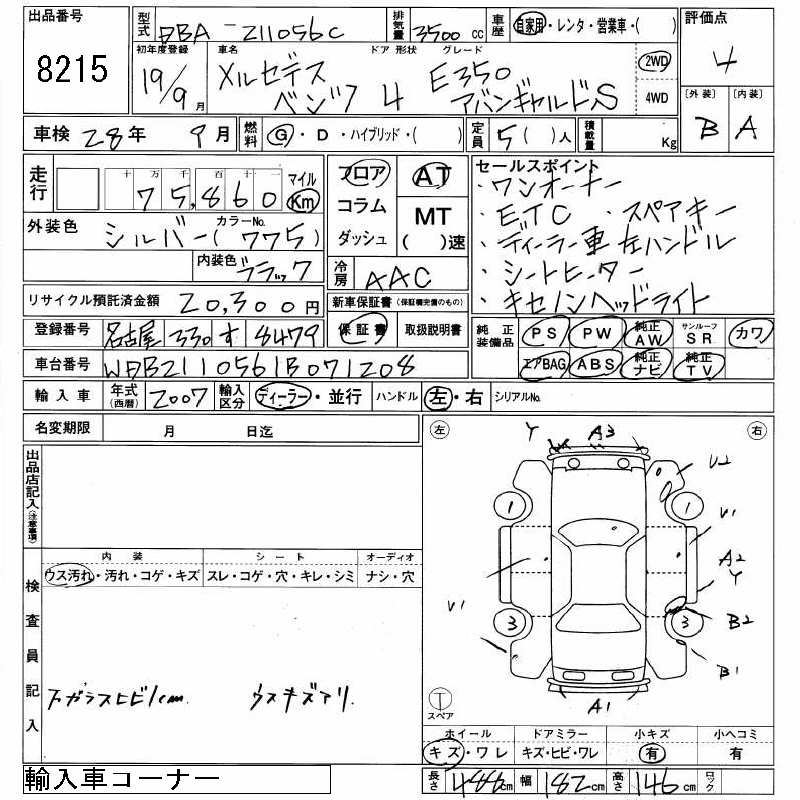 出品番号 型式 DBA-211056C 排気量 3500cc 車歴 自家用・レンタ・営業車・( ) 評価点
8215 初年度登録 車名 ドア 形状 グレード 4
19/9月 メルセデス ベンツ 4 E350 アバンギャルドS 2WD 4WD
〔外装〕 〔内装〕
B A
車検 28年 9月 燃料 G・D・ハイブリッド・( ) 定員 5( )人 積載量 Kg
走行 十万千百十一 75,860 マイル Km フロア AT セールスポイント
コラム MT ・ワンオーナー
外装色 シルバー カラーNo. (775) ダッシュ ( )速 ・ETC ・スペアキー
内装色 ブラック 冷房 AAC ・ディーラー車 左ハンドル
・シートヒーター
リサイクル預託済金額 20,300円 新車保証書(保証機完備のもの) ・キセノンヘッドライト
登録番号 名古屋 330 す 8479 保証書 取扱説明書 純正装備品 PS PW 純正AW サンルーフSR カワ
車台番号 WDB2110561B071208 エアBAG ABS 純正ナビ 純正TV
輸入車 年式(西暦) 2007 輸入区分 ディーラー・並行 ハンドル 左・右 シリアルNo.
名変期限 月 日迄
左 右
Y A3
U2
出品店記入(注意事項) 1 1
U1
内装 シート オーディオ
ウス汚れ・汚れ・コゲ・キズ スレ・コゲ・穴・キレ・シミ ナシ・穴
A2
Y
U1
3 3 B2
B1
検査員記入
ガラスヒビ1cm ウスキズアリ.
A1
スペア
ホイール ドアミラー 小キズ 小ヘコミ
キズ・ワレ キズ・ヒビ・ワレ 有 有
輸入車コーナー 長さ 488cm 幅 182cm 高さ 146cm ロック